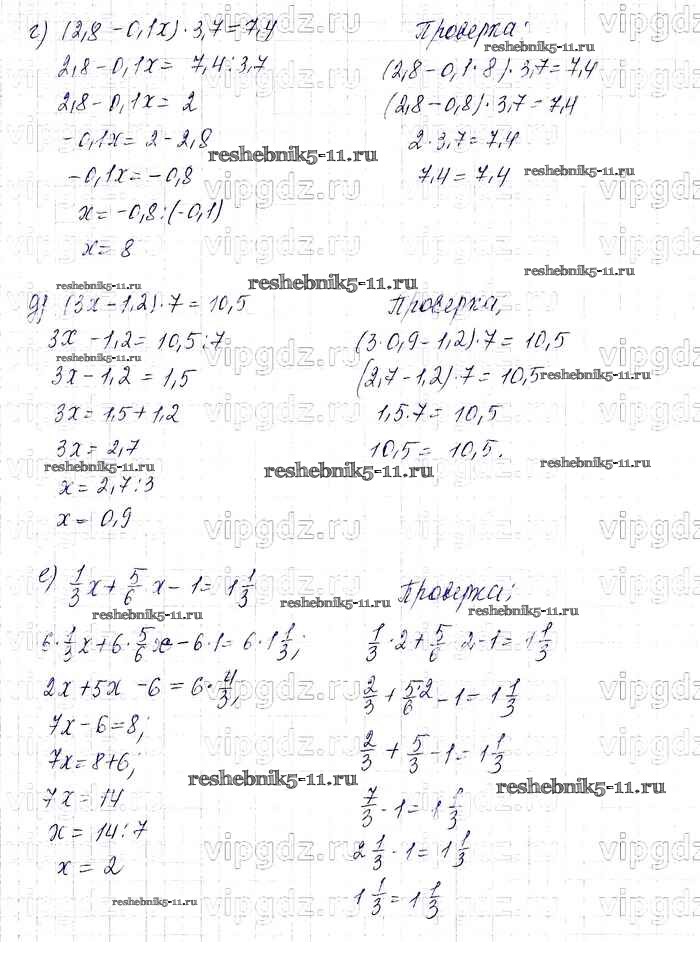 г) (2,8 − 0,1x) · 3,7 = 7,4
2,8 − 0,1x = 7,4 : 3,7
2,8 − 0,1x = 2
−0,1x = 2 − 2,8
−0,1x = −0,8
x = −0,8 : (−0,1)
x = 8
Проверка:
(2,8 − 0,1 · 8) · 3,7 = 7,4
(2,8 − 0,8) · 3,7 = 7,4
2 · 3,7 = 7,4
7,4 = 7,4
д) (3x − 1,2) · 7 = 10,5
3x − 1,2 = 10,5 : 7
3x − 1,2 = 1,5
3x = 1,5 + 1,2
3x = 2,7
x = 2,7 : 3
x = 0,9
Проверка,
(3 · 0,9 − 1,2) · 7 = 10,5
(2,7 − 1,2) · 7 = 10,5
1,5 · 7 = 10,5
10,5 = 10,5.
е) 1/3 x + 5/6 x − 1 = 1 1/3
6 · 1/3 x + 6 · 5/6 x − 6 · 1 = 6 · 1 1/3;
2x + 5x − 6 = 6 · 4/3;
7x − 6 = 8;
7x = 8 + 6;
7x = 14
x = 14 : 7
x = 2
Проверка:
1/3 · 2 + 5/6 · 2 − 1 = 1 1/3
2/3 + 5·2/6 − 1 = 1 1/3
2/3 + 5/3 − 1 = 1 1/3
7/3 − 1 = 1 1/3
2 1/3 − 1 = 1 1/3
1 1/3 = 1 1/3
reshebnik5-11.ru
vipgdz.ru